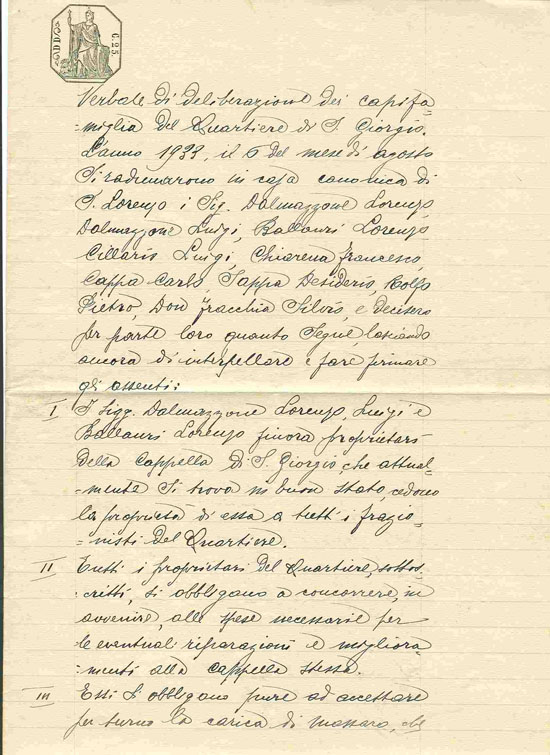 C. 25
Verbale di deliberazione dei capifa=
=miglia del Quartiere di S. Giorgio.
L'anno 1933, il 6 del mese di agosto
Si radunarono in casa canonica di
S. Lorenzo i Sig. Dalmazzone Lorenzo,
Dalmazzone Luigi, Ballauri Lorenzo
Cillario Luigi, Chiarena Francesco
Cappa Carlo, Sappa Desiderio, Rolfo
Pietro, Don Fracchia Silvio, e decisero
per parte loro quanto segue, lasciando
ancora di interpellare e fare firmare
gli assenti:
I I Sigg. Dalmazzone Lorenzo, Luigi e
Ballauri Lorenzo finora proprietari
della Cappella di S. Giorgio che attual=
=mente si trova in buon stato, cedono
la proprietà di essa a tutti i frazio=
=nisti del Quartiere.
II Tutti i proprietari del Quartiere, sottos=
critti, si obbligano a concorrere, in
avvenire, alle spese necessarie per
le eventuali riparazioni e migliora=
=menti alla cappella stessa.
III Essi s'obbligano pure ad accettare
per turno la carica di massaro, che